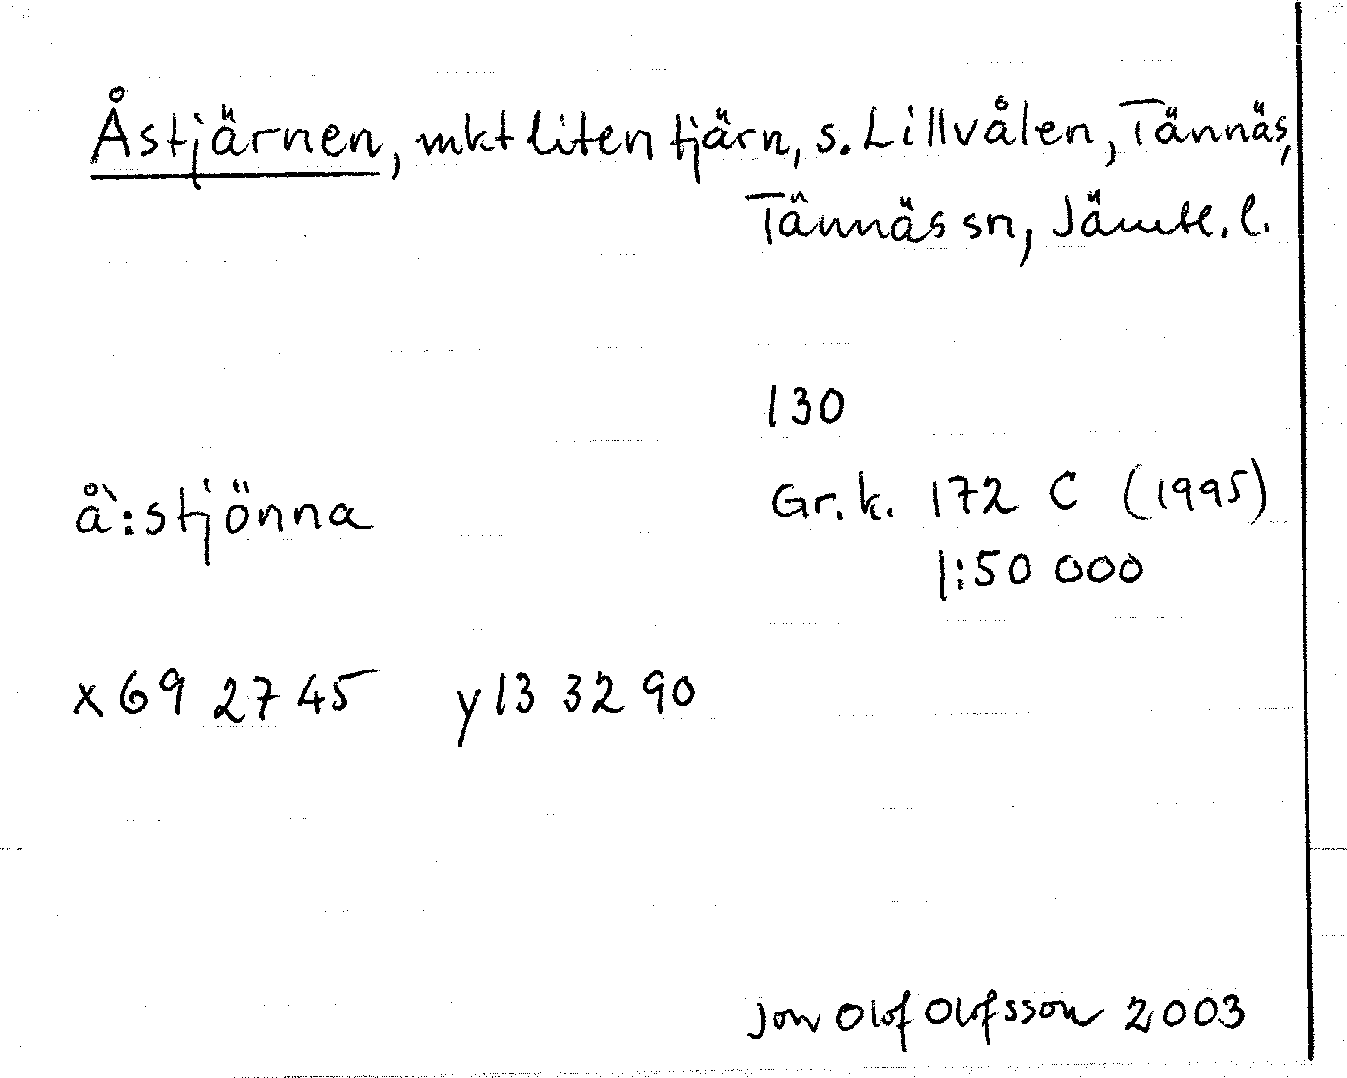 Åstjärnen, mkt liten tjärn, s. Lillvålen, Tännäs,
Tännäs sn, Jämtl. l.
130
å`:stjönna
Gr.k. 172 C (1995)
1:50 000
x 69 27 45 y 13 32 90
Jon Olof Olofsson 2003